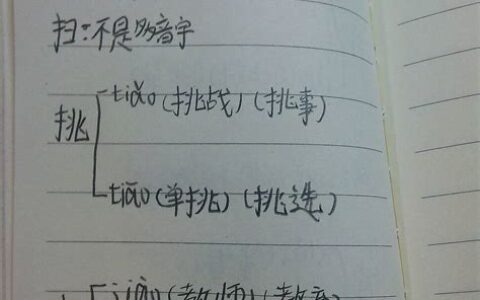 扫:不是多音字
挑
tiǎo(挑战)(挑事)
tiāo(单挑)(挑选)
jiào(教师)(教育)